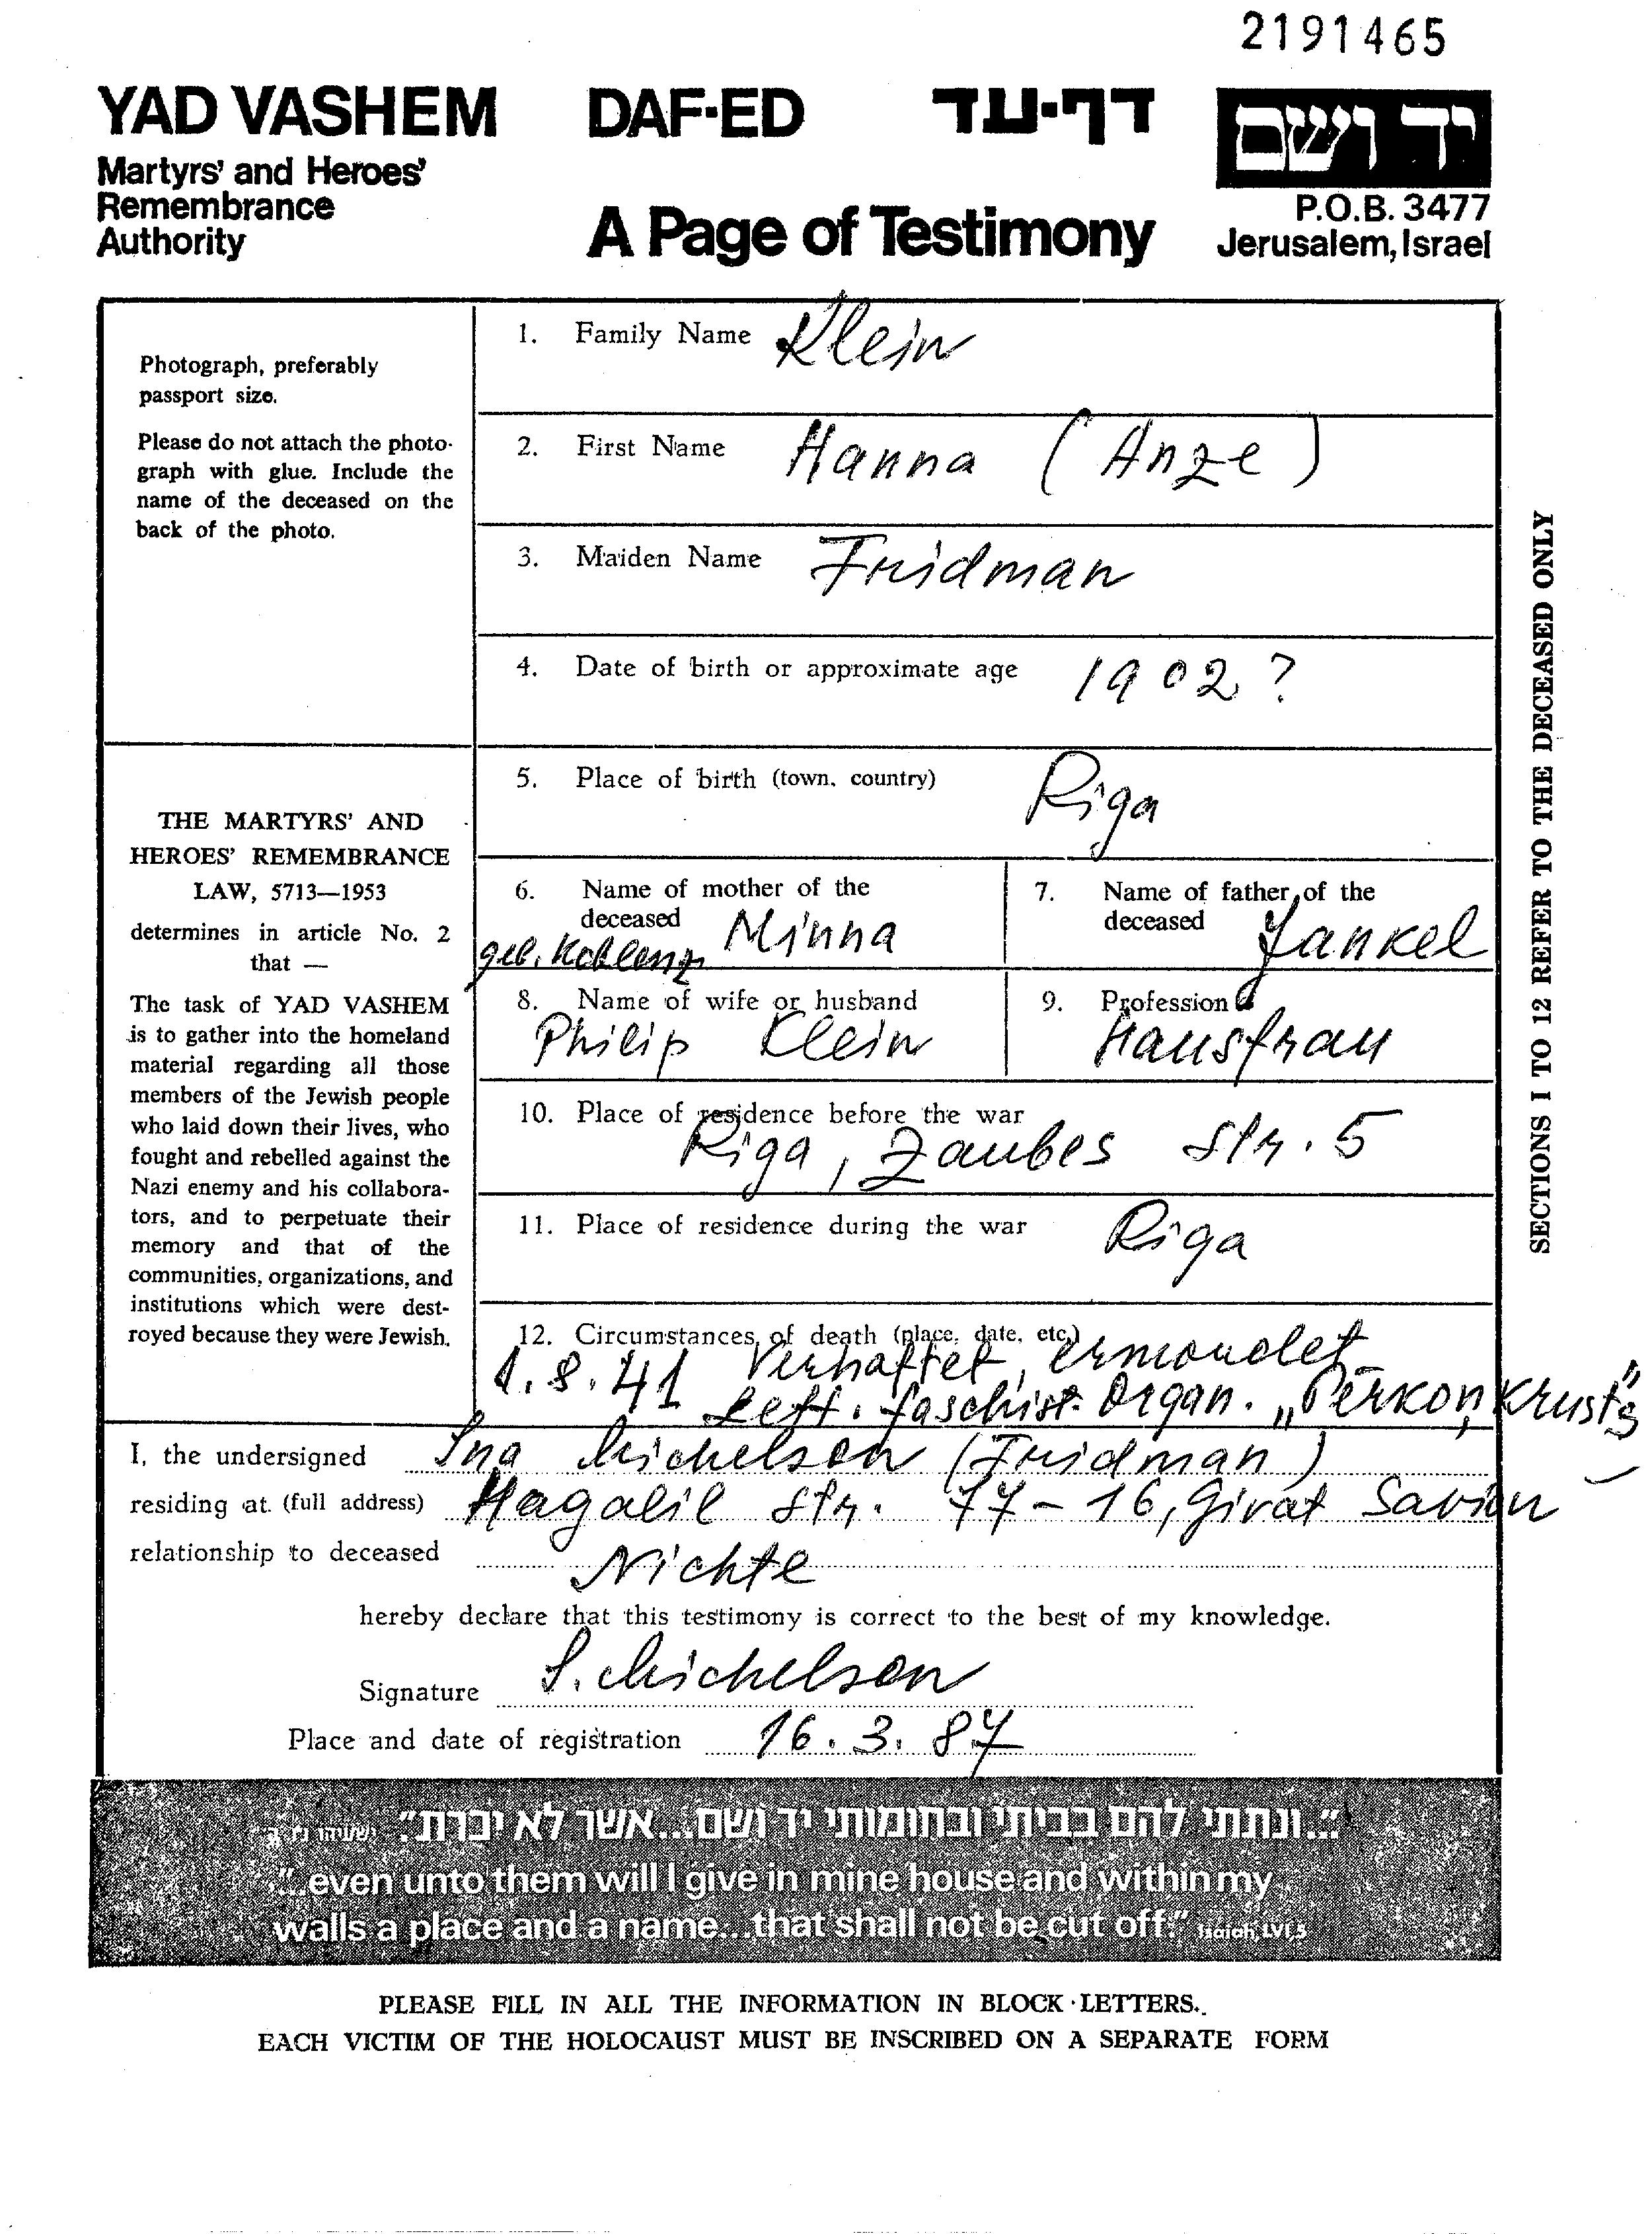 2191465
YAD VASHEM DAF-ED דף-עד יד ושם
Martyrs' and Heroes'
Remembrance
Authority
A Page of Testimony
P.O.B. 3477
Jerusalem, Israel
Photograph, preferably
passport size.
Please do not attach the photo-
graph with glue. Include the
name of the deceased on the
back of the photo.
THE MARTYRS' AND
HEROES' REMEMBRANCE
LAW, 5713—1953
determines in article No. 2
that —
The task of YAD VASHEM
is to gather into the homeland
material regarding all those
members of the Jewish people
who laid down their lives, who
fought and rebelled against the
Nazi enemy and his collabora-
tors, and to perpetuate their
memory and that of the
communities, organizations, and
institutions which were dest-
royed because they were Jewish.
1. Family Name Klein
2. First Name Hanna (Anze)
3. Maiden Name Fridman
4. Date of birth or approximate age 1902 ?
5. Place of birth (town, country) Riga
6. Name of mother of the
deceased Minna
geb. Koblenz
7. Name of father of the
deceased Jankel
8. Name of wife or husband
Philip Klein
9. Profession
Hausfrau
10. Place of residence before the war
Riga, Zaubes str. 5
11. Place of residence during the war Riga
12. Circumstances of death (place, date, etc.)
1.8.41 Verhaftet, ermordet
lett. faschist. Organ. „Pērkoņkrusts"
SECTIONS 1 TO 12 REFER TO THE DECEASED ONLY
I, the undersigned Ina Michelson (Fridman)
residing at. (full address) Hagalil str. 77-16, Givat Savion
relationship to deceased Nichte
hereby declare that this testimony is correct to the best of my knowledge.
Signature I. Michelson
Place and date of registration 16.3.87
"...ונתתי להם בביתי ובחומותי יד ושם...אשר לא יכרת." ישעיהו נ"ו ה'
"...even unto them will I give in mine house and within my
walls a place and a name...that shall not be cut off." Isaiah, LVI,5
PLEASE FILL IN ALL THE INFORMATION IN BLOCK LETTERS.
EACH VICTIM OF THE HOLOCAUST MUST BE INSCRIBED ON A SEPARATE FORM